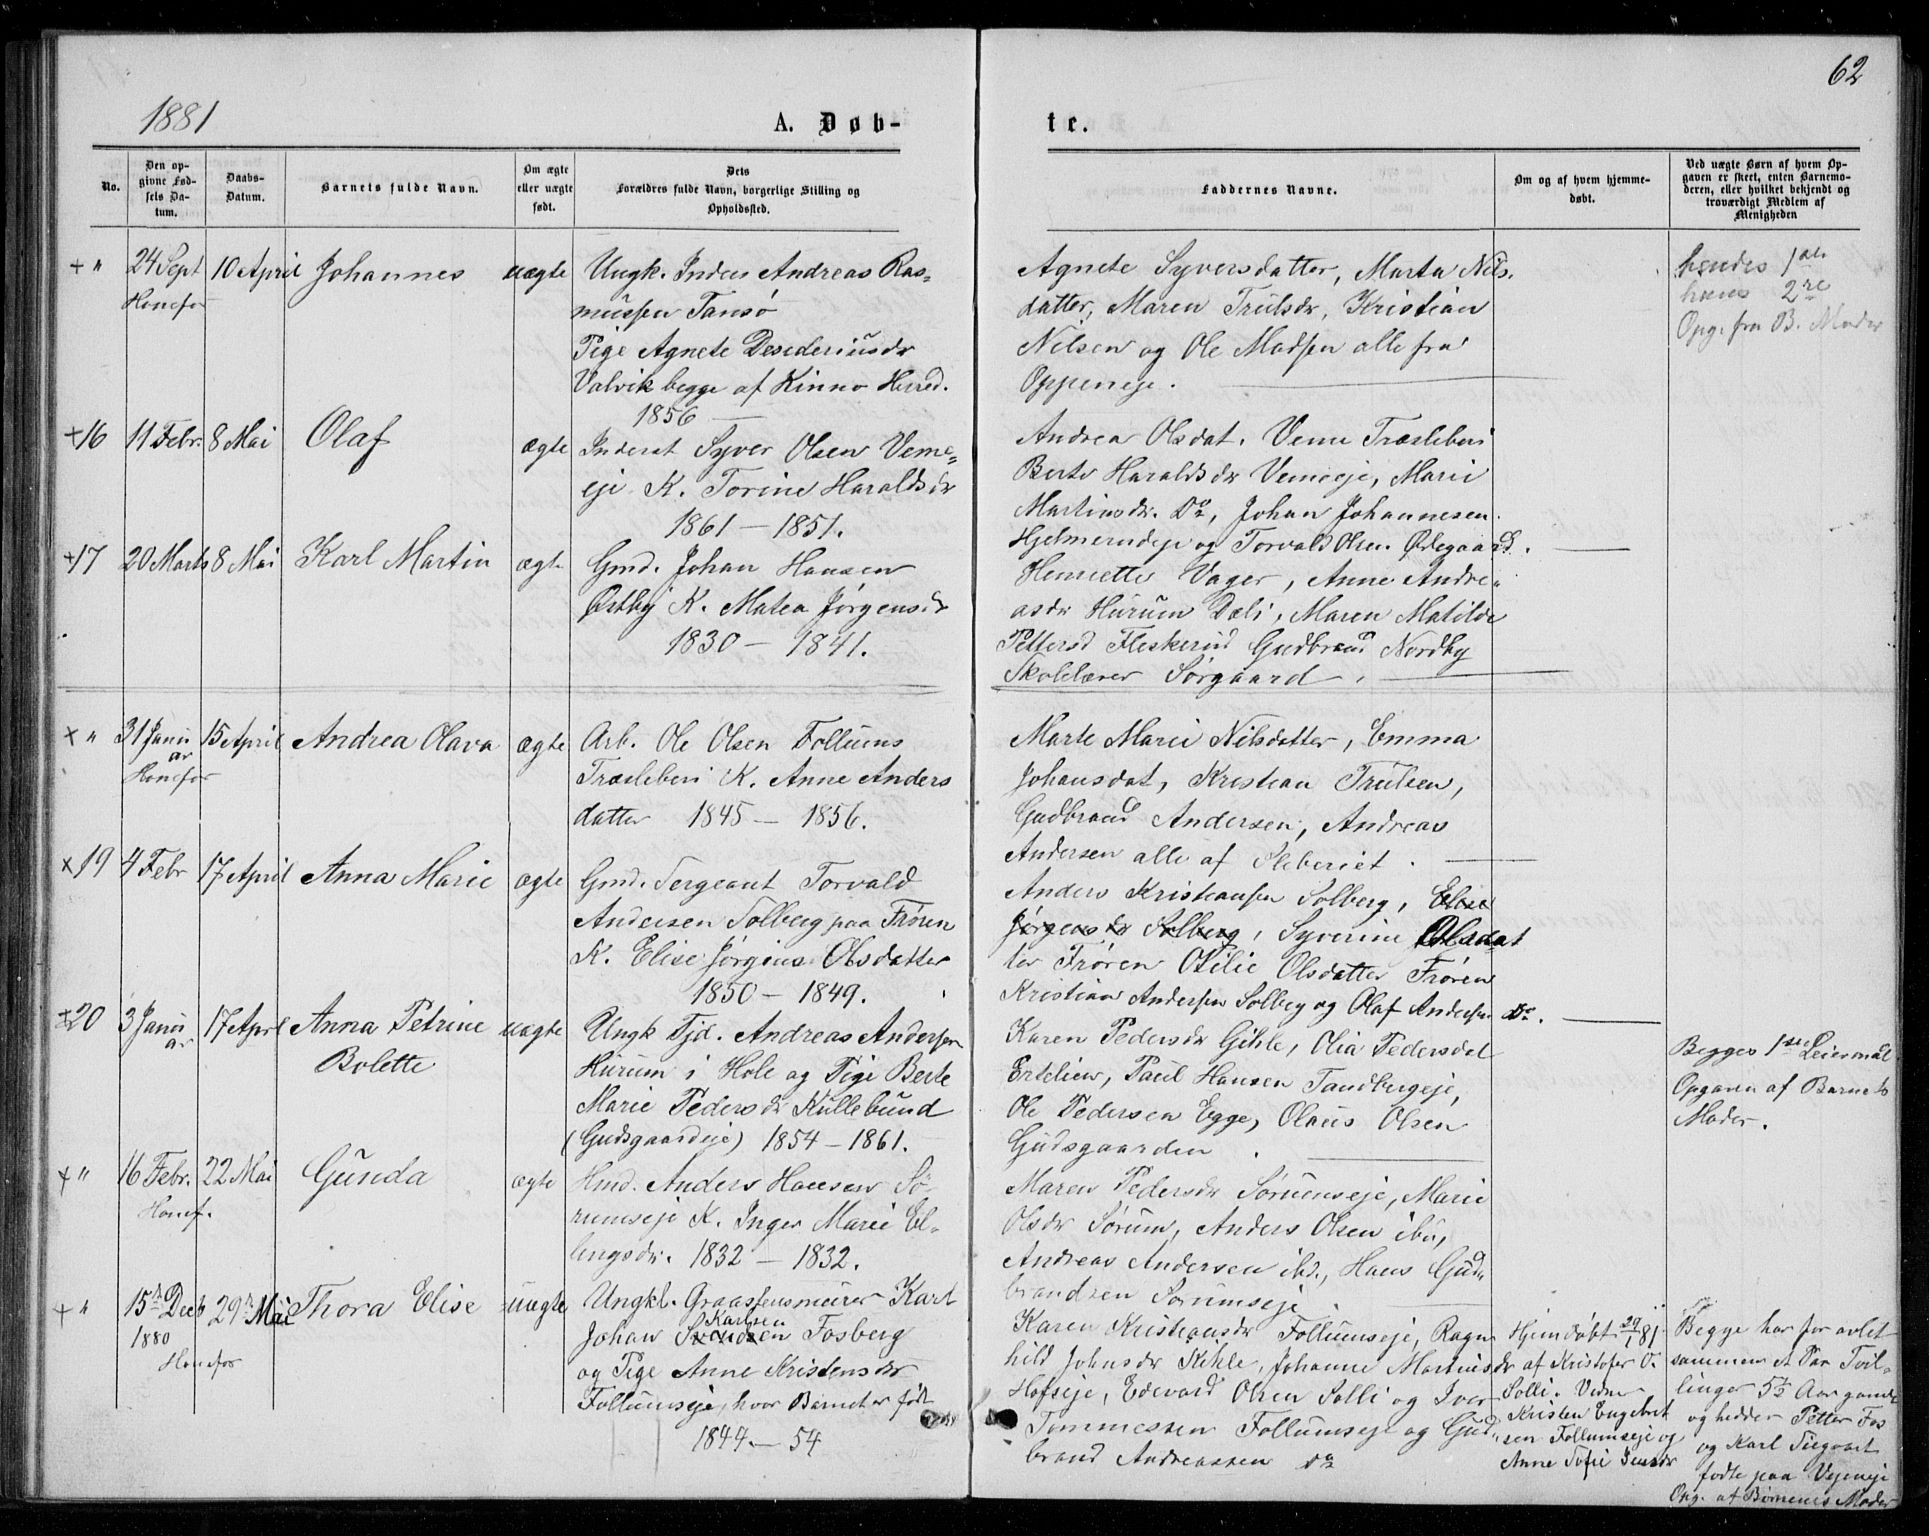 62
1881
A. Døb-
te.
No.
Den op-
givne Fød-
sels Da-
tum.
Daabs-
Datum.
Barnets fulde Navn.
Om ægte
eller uægte
født.
Dets
Forældres fulde Navn, borgerlige Stilling og
Opholdssted.
Faddernes Navne.
Om og af hvem hjemme-
døbt.
Ved uægte Børn af hvem Op-
gaven er skeet, enten Barnemo-
deren, eller hvilket bekjendt og
troværdigt Medlem af
Menigheden
+ " 24 Sept 10 April Johannes uægte
Honefos
Ungk. Inders Andreas Ras-
mussen Tansø
Pige Agnete Desideriusdr
Valvik begge af Kinno Herred.
1856 —
Agnete Syversdatter, Marta Nils-
datter, Maren Trulsdr, Kristian
Nilsen og Ole Madsen alle fra
Oppeneje.
hendes 1ste
hans 2re
Opg. fra B. Moder
+16 11 Febr. 8 Mai Olaf ægte
Inderst Syver Olsen Veme-
eje K. Torine Haraldsdr
1861 — 1851.
Andrea Olsdat. Veme Træsleberi
Berte Haraldsdr Vemeeje, Marie
Martinsdr. Do, Johan Johannesen
Hjelmerudeje og Torvald Olsen Ødegaard.
+17 20 Marts 8 Mai Karl Martin ægte
Gmd. Johan Hansen
Østby K. Matea Jørgensdr
1830 — 1841.
Henriette Vager, Anne Andre-
asdr Hurum Dæli, Maren Matilde
Pettersd Fleskerud Gudbrand Nordby
Skolelærer Sørgaard.
+ " 31 Janu 15 April Andrea Olava ægte
ar
Honefos
Arb. Ole Olsen Follums
Træsleberi K. Anne Anders
datter 1845 — 1856.
Marte Marie Nilsdatter, Emma
Johansdat, Kristian Trulsen,
Gudbrand Andersen, Andreas
Andersen alle af Sleberiet.
+19 4 Febr 17 April Anna Marie ægte
Gmd. Sergeant Torvald
Andersen Solberg paa Frøren
K. Elise Jørgine Olsdatter
1850 — 1849.
Anders Kristiansen Solberg, Elise
Jørgensdr Solberg, Syverine Olsdat
ter Frøren Otilie Olsdatter Frøren
Kristian Andersen Solberg og Olaf Andersen Do.
+20 3 Janu 17 Aprl Anna Petrine uægte
ar
Bolette
Ungk Tjd. Andreas Andersen
Hurum i Hole og Pige Berte
Marie Pedersdr Kullebund
(Gudsgaardeje) 1854 — 1861.
Karen Pedersdr Gihle, Olia Pedersdat
Ertelien, Paul Hansen Tandbergeje,
Ole Pedersen Egge, Olaus Olsen
Gudsgaarden.
Begges 1ste Leiermål
Opgaven af Barnets
Moder.
+ " 16 Febr. 22 Mai Gunda ægte
Honef.
Hmd. Anders Hansen Sø-
rumseje K. Inger Marie El-
lingsdr. 1832 — 1832.
Maren Pedersdr Sørumseje, Marie
Olsdr Sørum, Anders Olsen ibd,
Andreas Andersen ibd., Hans Gud-
brandsen Sørumseje.
+ " 15de Decb 29de Mai Thora Elise uægte
1880
Honefos
Ungkl. Graastensmurer Karl
Karlsen
Johan Svendsen Fosberg
og Pige Anne Kristensdr
Follumseje, hvor Barnet er født
1844 — 54
Karen Kristiansdr Follumseje, Ragn
hild Johnsdr Kihle, Johanne Martins
dr Hofseje, Edevard Olsen Solli og Iver
Tommessen Follumseje og Gud-
brand Andreassen Do
Hjemdøbt 29/1 81
af Kristofer O.
Solli. Vidne
Kristen Engebret
sen Follumseje og
Anne Sofie Jensdr
Begge har før avlet
sammen et Par Tvil-
linger 5½ Aar gamle
og hedder Petter Fos
og Karl
fødte paa Vejeneje
Opg. af Børnenes Moder